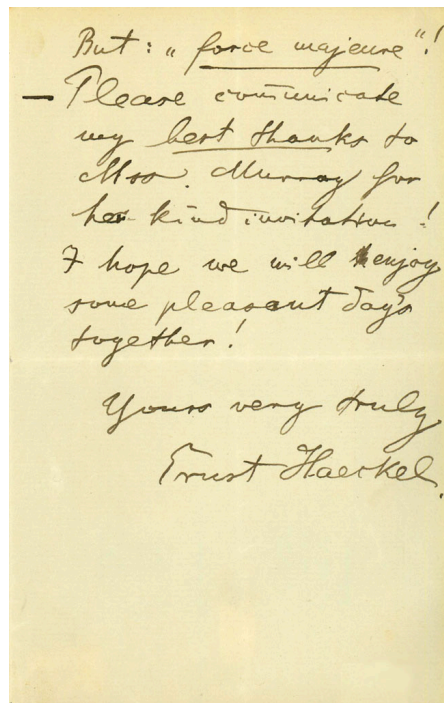 But: „force majeure“!
— Please communicate
my best thanks to
Mrs. Murray for
her kind invitation!
I hope we will enjoy
some pleasant days
together!
Yours very truly
Ernst Haeckel.